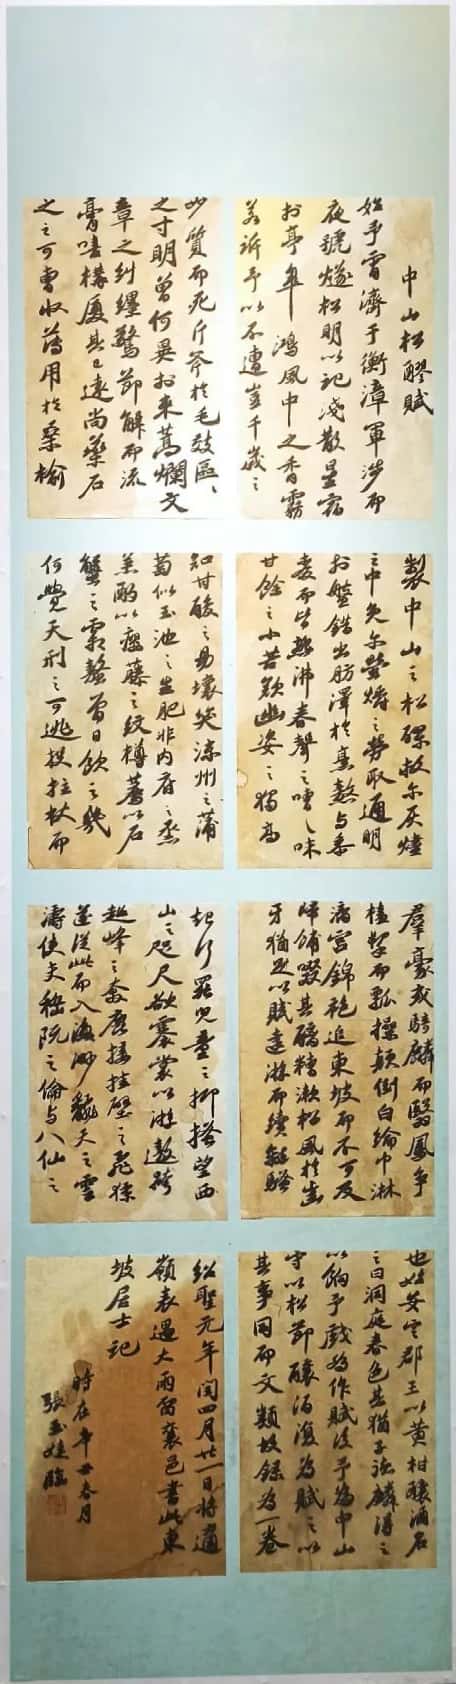 中山松醪賦
始予宵濟于衡漳軍涉而
夜號燧松明以記淺散星宿
於亭皋鬱風中之香霧
若訴予以不遭豈千歲之
妙質而死斤斧於毛皷區、
之寸明曾何異於束蒿爛文
章之糾纆驚節解而流
膏嗟構厦其已遠尚藥石
之可曹收薄用於桑榆
製中山之松醪救尔灰燼
之中免尔螢爝之勞取通明
於盤錯出肪澤於烹熬與黍
麥而皆熟沸春聲之嘈、味
甘餘之小苦歎幽姿之獨高
知甘酸之易壞笑凉州之蒲
萄似玉池之生肥非内府之烝
羔酌以癭藤之紋樽薦以石
蟹之霜螯曾日飲之幾
何覺天刑之可逃投拄杖而
羣豪或騎麟而翳鳳爭
榼挈而瓢操顛倒白綸巾淋
漓宮錦袍追東坡而不可及
歸餔歠其醨糟漱松風於齒
牙猶足以賦遠遊而續離騷
起行罷兒童之抑搔望西
山之咫尺欲褰裳以游遨跨
超峰之奔鹿接挂壁之飛猱
遂從此而入海渺飜天之雲
濤使夫嵇阮之倫與八仙之
也始安定郡王以黄柑釀酒名
之曰洞庭春色其猶子德麟得之
以餉予戲為作賦後予為中山
守以松節釀酒復為賦之以
其事同而文類故錄為一卷
紹聖元年閏四月廿一日將適
嶺表遇大雨留襄邑書此東
坡居士記
時在辛丑春月
張玉 臨